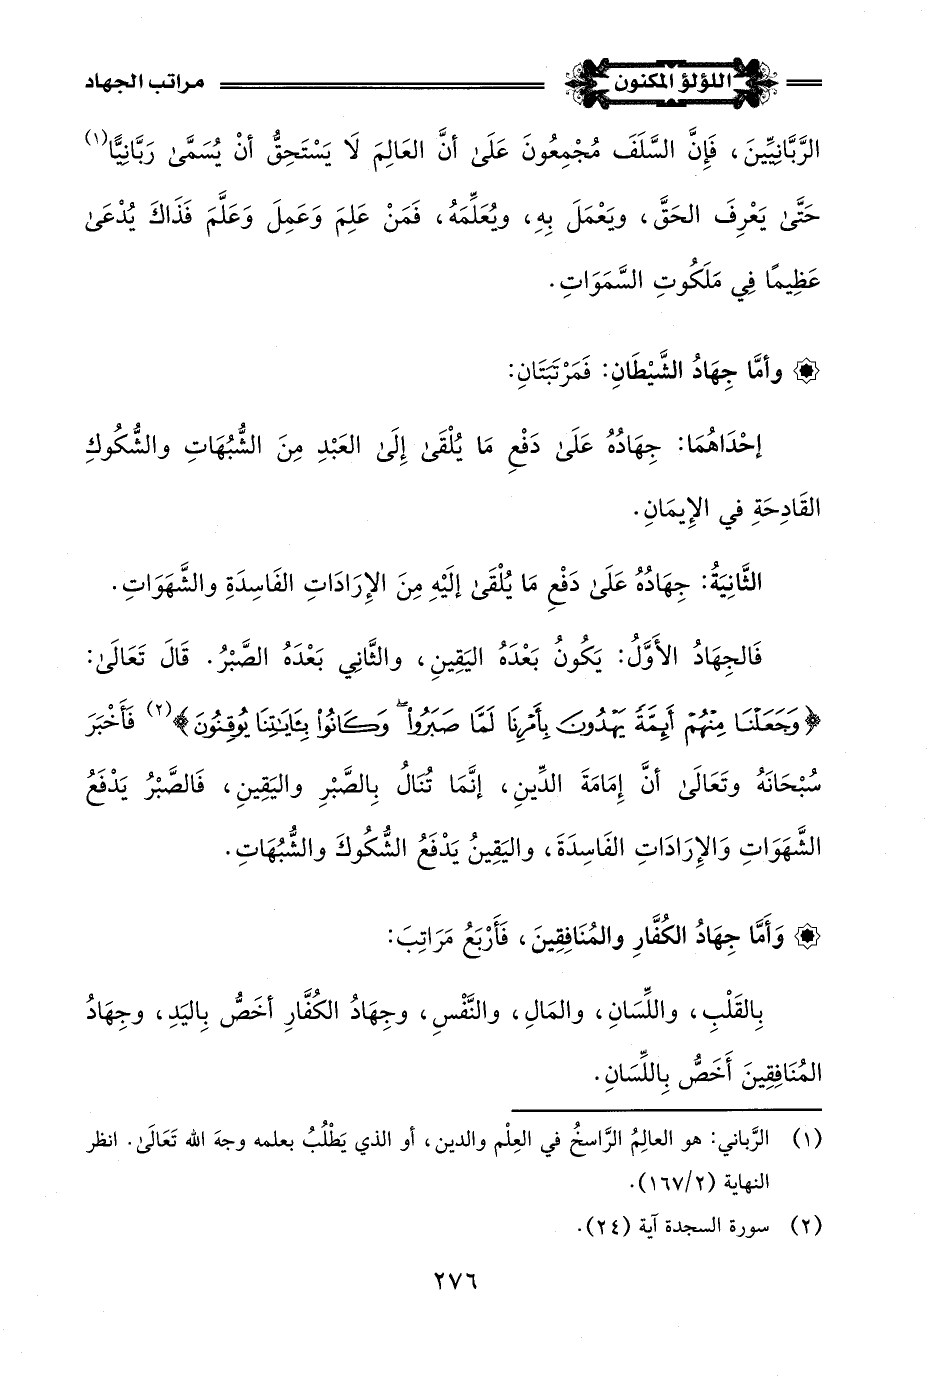 اللؤلؤ المكنون مراتب الجهاد
الرَّبَّانِيِّينَ، فَإِنَّ السَّلَفَ مُجْمِعُونَ عَلَىٰ أنَّ العَالِمَ لَا يَسْتَحِقُّ أنْ يُسَمَّىٰ رَبَّانِيًّا(١)
حَتَّىٰ يَعْرِفَ الحَقَّ، ويَعْمَلَ بِهِ، ويُعَلِّمَهُ، فَمَنْ عَلِمَ وَعَمِلَ وَعَلَّمَ فَذَاكَ يُدْعَىٰ
عَظِيمًا فِي مَلَكُوتِ السَّمَوَاتِ.
۞ وأمَّا جِهَادُ الشَّيْطَانِ: فَمَرْتَبَتَانِ:
إحْدَاهُمَا: جِهَادُهُ عَلَىٰ دَفْعِ مَا يُلْقَىٰ إِلَىٰ العَبْدِ مِنَ الشُّبُهَاتِ والشُّكُوكِ
القَادِحَةِ في الإِيمَانِ.
الثَّانِيَةُ: جِهَادُهُ عَلَىٰ دَفْعِ مَا يُلْقَىٰ إلَيْهِ مِنَ الإِرَادَاتِ الفَاسِدَةِ والشَّهَوَاتِ.
فَالجِهَادُ الأَوَّلُ: يَكُونُ بَعْدَهُ اليَقِينِ، والثَّانِي بَعْدَهُ الصَّبْرُ. قَالَ تَعَالَىٰ:
﴿وَجَعَلْنَا مِنْهُمْ أَئِمَّةً يَهْدُونَ بِأَمْرِنَا لَمَّا صَبَرُوا۟ ۖ وَكَانُوا۟ بِـَٔايَـٰتِنَا يُوقِنُونَ﴾(٢) فَأَخْبَرَ
سُبْحَانَهُ وتَعَالَىٰ أنَّ إمَامَةَ الدِّينِ، إنَّمَا تُنَالُ بِالصَّبْرِ واليَقِينِ، فَالصَّبْرُ يَدْفَعُ
الشَّهَوَاتِ وَالإرَادَاتِ الفَاسِدَةَ، واليَقِينُ يَدْفَعُ الشُّكُوكَ والشُّبُهَاتِ.
۞ وَأَمَّا جِهَادُ الكُفَّارِ والمُنَافِقِينَ، فَأَرْبَعُ مَرَاتِبَ:
بِالقَلْبِ، واللِّسَانِ، والمَالِ، والنَّفْسِ، وجِهَادُ الكُفَّارِ أخَصُّ بِاليَدِ، وجِهَادُ
المُنَافِقِينَ أَخَصُّ بِاللِّسَانِ.
(١) الرَّباني: هو العالِمُ الرَّاسخُ في العِلْم والدين، أو الذي يَطْلُبُ بعلمه وجهَ الله تَعَالَىٰ. انظر
النهاية (١٦٧/٢).
(٢) سورة السجدة آية (٢٤).
٢٧٦